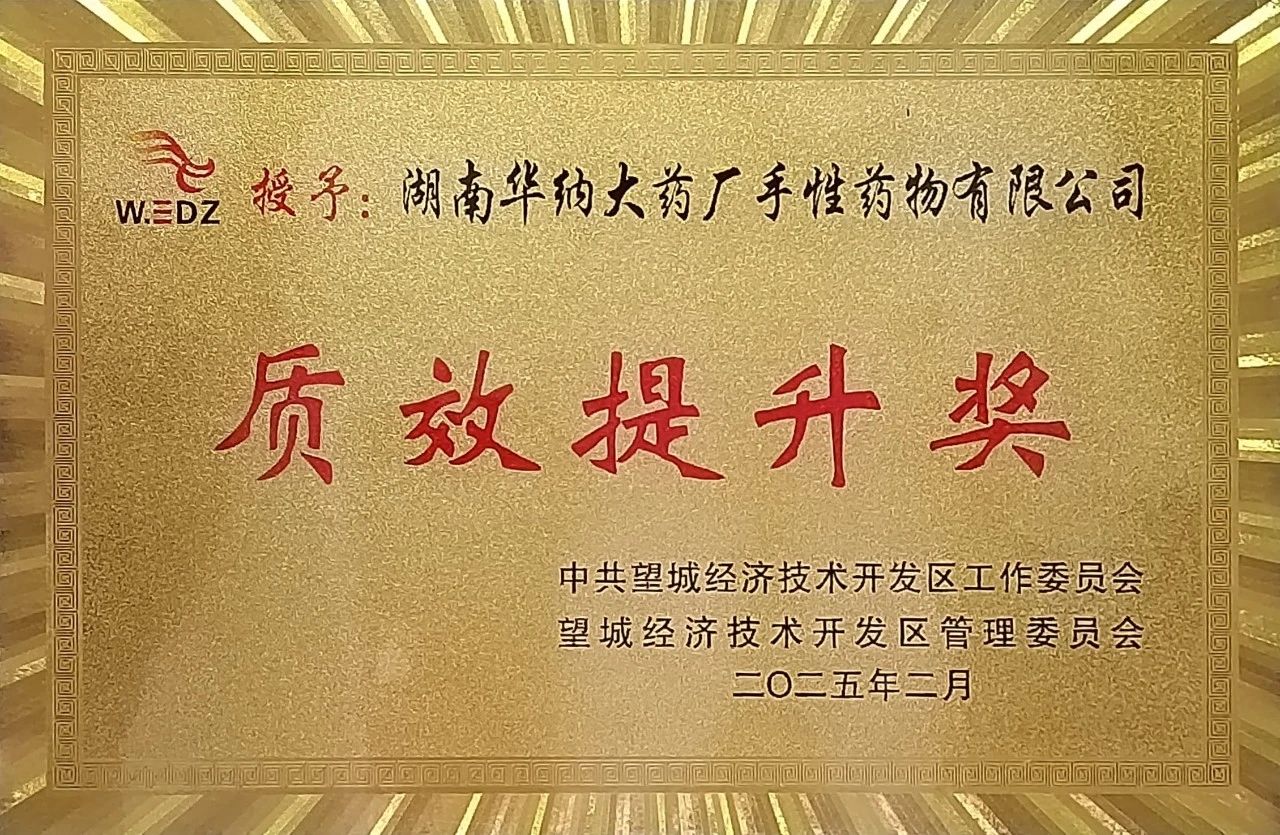 W.EDZ
授予：湖南华纳大药厂手性药物有限公司
质效提升奖
中共望城经济技术开发区工作委员会
望城经济技术开发区管理委员会
二〇二五年二月